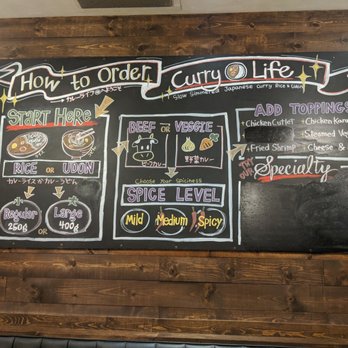 How to Order
Curry Life
カレーライフへようこそ
Slow Simmered Japanese Curry Rice & Udon
START HERE
RICE OR UDON
カレーライスかカレーうどん
Regular OR Large
250g 400g
BEEF OR VEGGIE
ビーフカレー 野菜カレー
Choose Your Spiciness
SPICE LEVEL
Mild Medium Spicy
ADD TOPPINGS
+Chicken Cutlet +Chicken
+Steamed
+Fried Shrimp +Cheese &
TRY OUR
Specialty